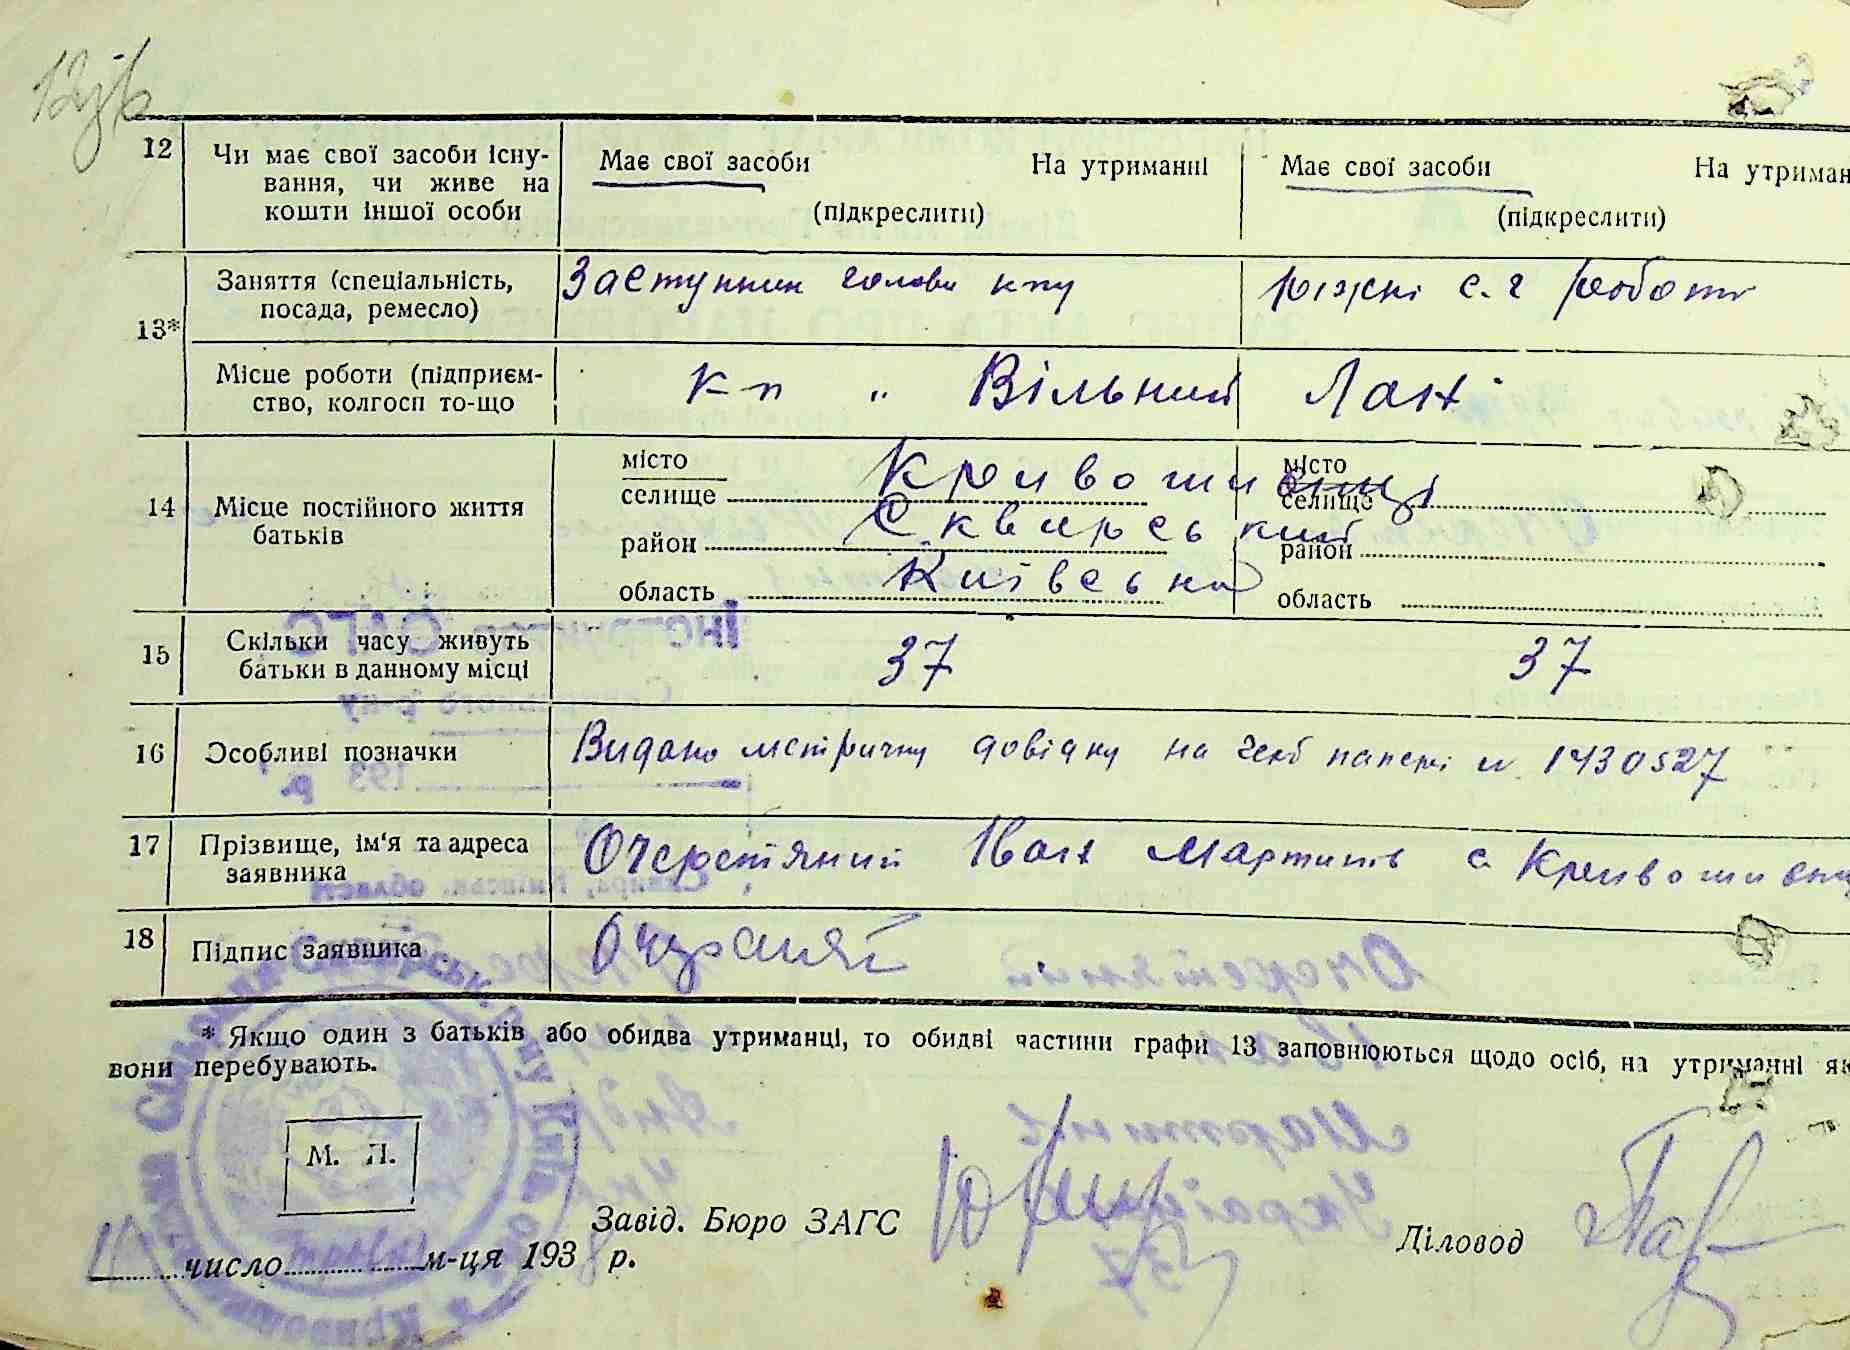 12
Чи має свої засоби існу-
вання, чи живе на
кошти іншої особи
Має свої засоби На утриманні
(підкреслити)
Має свої засоби На утриман
(підкреслити)
13*
Заняття (спеціальність,
посада, ремесло)
Заступник голови кпу
ріжні с.г роботи
Місце роботи (підприєм-
ство, колгосп то-що
К-п „ Вільний Лан
14
Місце постійного життя
батьків
місто
селище Кривошиєнці
район Сквирський
область Київська
місто
селище
район
область
15
Скільки часу живуть
батьки в данному місці
37 37
16
Особливі позначки
Видано метричну довідку на герб папері № 1430527
17
Прізвище, ім'я та адреса
заявника
Очеретяний Іван Мартинів с Кривошиєнц
18
Підпис заявника
* Якщо один з батьків або обидва утриманці, то обидві частини графи 13 заповнюються щодо осіб, на утриманні як
вони перебувають.
М. П.
Завід. Бюро ЗАГС
Діловод
число м-ця 1938 р.